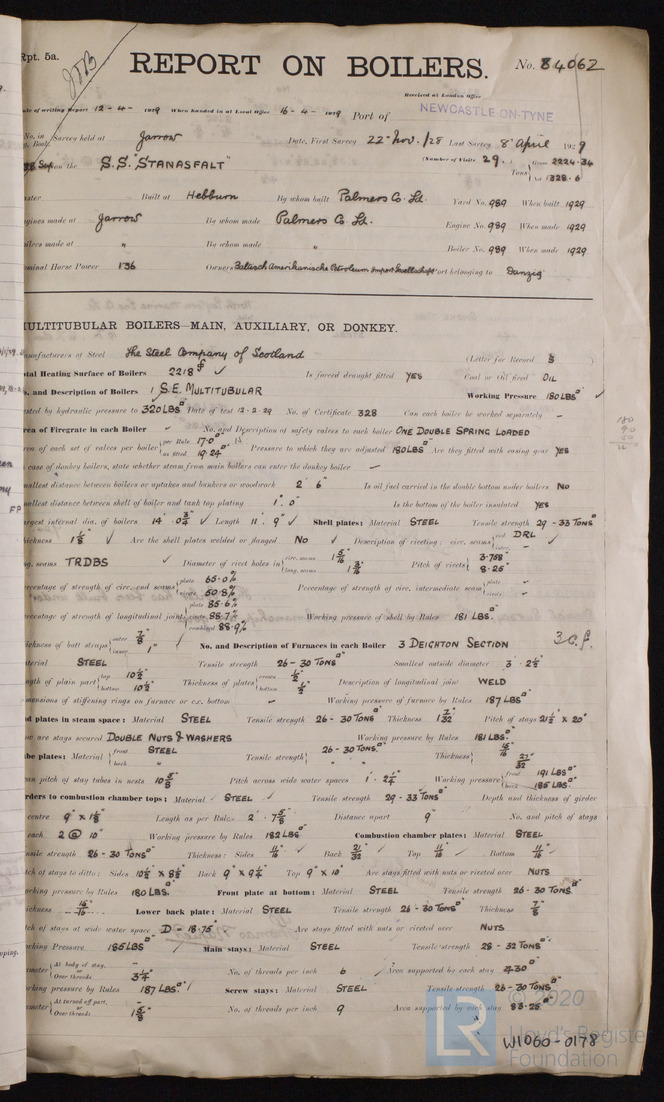 Rpt. 5a.
REPORT ON BOILERS.
No. 84062
Received at London Office
Date of writing Report 12-4-1929 When handed in at Local Office 16-4-1929 Port of NEWCASTLE-ON-TYNE
No. in Survey held at Jarrow Date, First Survey 22 Nov./28 Last Survey 8 April 1929
on the S.S. "STANASFALT" (Number of Visits 29.) Tons Gross 2224.34
Net 1328.6
Built at Hebburn By whom built Palmers Co. Ld. Yard No. 989 When built 1929
Engines made at Jarrow By whom made Palmers Co. Ld. Engine No. 989 When made 1929
Boilers made at " By whom made " Boiler No. 989 When made 1929
Nominal Horse Power 136 Owners Baltisch Amerikanische Petroleum Import Gesellschaft Port belonging to Danzig
MULTITUBULAR BOILERS—MAIN, AUXILIARY, OR DONKEY.
Manufacturers of Steel The Steel Company of Scotland (Letter for Record S)
Total Heating Surface of Boilers 2218 ✓ Is forced draught fitted YES Coal or Oil fired OIL
No. and Description of Boilers 1 S.E. MULTITUBULAR Working Pressure 180 LBS ✓
Tested by hydraulic pressure to 320 LBS Date of test 12-2-29 No. of Certificate 328 Can each boiler be worked separately –
Area of Firegrate in each Boiler – No. and Description of safety valves to each boiler ONE DOUBLE SPRING LOADED
Area of each set of valves per boiler per Rule 17.0 as fitted 19.24 Pressure to which they are adjusted 180 LBS Are they fitted with easing gear YES
In case of donkey boilers, state whether steam from main boilers can enter the donkey boiler –
Smallest distance between boilers or uptakes and bunkers or woodwork 2' 6" Is oil fuel carried in the double bottom under boilers NO
Smallest distance between shell of boiler and tank top plating 1' 0" Is the bottom of the boiler insulated YES
Largest internal dia. of boilers 14' 0 3/4" ✓ Length 11' 9" ✓ Shell plates: Material STEEL Tensile strength 29-33 TONS
Thickness 1 1/8" ✓ Are the shell plates welded or flanged NO ✓ Description of riveting: circ. seams end DRL ✓ inter. –
long. seams TRDBS ✓ Diameter of rivet holes in circ. seams 1 5/16 long. seams 1 3/16 Pitch of rivets 3.758" 8.25"
Percentage of strength of circ. end seams plate 65.0% rivets 50.8% Percentage of strength of circ. intermediate seam plate – rivets –
Percentage of strength of longitudinal joint plate 85.6% rivets 88.7% combined 88.9% Working pressure of shell by Rules 181 LBS.
Thickness of butt straps outer 7/8" inner 1" No. and Description of Furnaces in each Boiler 3 DEIGHTON SECTION 3 C.f.
Material STEEL Tensile strength 26-30 TONS Smallest outside diameter 3' 2 1/2"
Length of plain part top 10 1/2" bottom 10 1/2" Thickness of plates crown 1/2" bottom 1/2" Description of longitudinal joint WELD
Dimensions of stiffening rings on furnace or c.c. bottom – Working pressure of furnace by Rules 187 LBS
End plates in steam space: Material STEEL Tensile strength 26-30 TONS Thickness 1 7/32" Pitch of stays 21 1/2" × 20"
How are stays secured DOUBLE NUTS & WASHERS Working pressure by Rules 181 LBS
Tube plates: Material front STEEL back " Tensile strength 26-30 TONS " " Thickness 15/16" 27/32"
Mean pitch of stay tubes in nests 10 5/8" Pitch across wide water spaces 1' 2 1/4" Working pressure front 191 LBS back 185 LBS.
Girders to combustion chamber tops: Material STEEL ✓ Tensile strength 29-33 TONS Depth and thickness of girder
at centre 9" × 1 1/8" Length as per Rule 2' 7 5/8" Distance apart 9" No. and pitch of stays
in each 2 @ 10" Working pressure by Rules 182 LBS Combustion chamber plates: Material STEEL
Tensile strength 26-30 TONS Thickness: Sides 11/16" ✓ Back 21/32" ✓ Top 11/16" ✓ Bottom 11/16" ✓
Pitch of stays to ditto: Sides 10 1/2" × 8 1/2" Back 9" × 9 1/4" Top 9" × 10" Are stays fitted with nuts or riveted over NUTS
Working pressure by Rules 180 LBS. Front plate at bottom: Material STEEL Tensile strength 26-30 TONS
Thickness 15/16" Lower back plate: Material STEEL Tensile strength 26-30 TONS Thickness 7/8"
Pitch of stays at wide water space D = 18.75" Are stays fitted with nuts or riveted over NUTS
Working Pressure 185 LBS Main stays: Material STEEL Tensile strength 28-32 TONS
Diameter At body of stay, – or Over threads 3 1/4" No. of threads per inch 6 Area supported by each stay 430
Working pressure by Rules 187 LBS. ✓ Screw stays: Material STEEL Tensile strength 26-30 TONS
Diameter At turned off part, – or Over threads 1 5/8" No. of threads per inch 9 Area supported by each stay 83.25
LR © 2020
Lloyd's Register
Foundation
W1060-0178